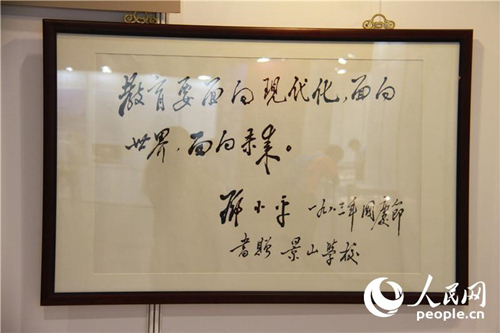 教育要面向现代化，面向
世界，面向未来。
邓小平 一九八三年国庆节
书赠 景山学校
人民网
people.cn